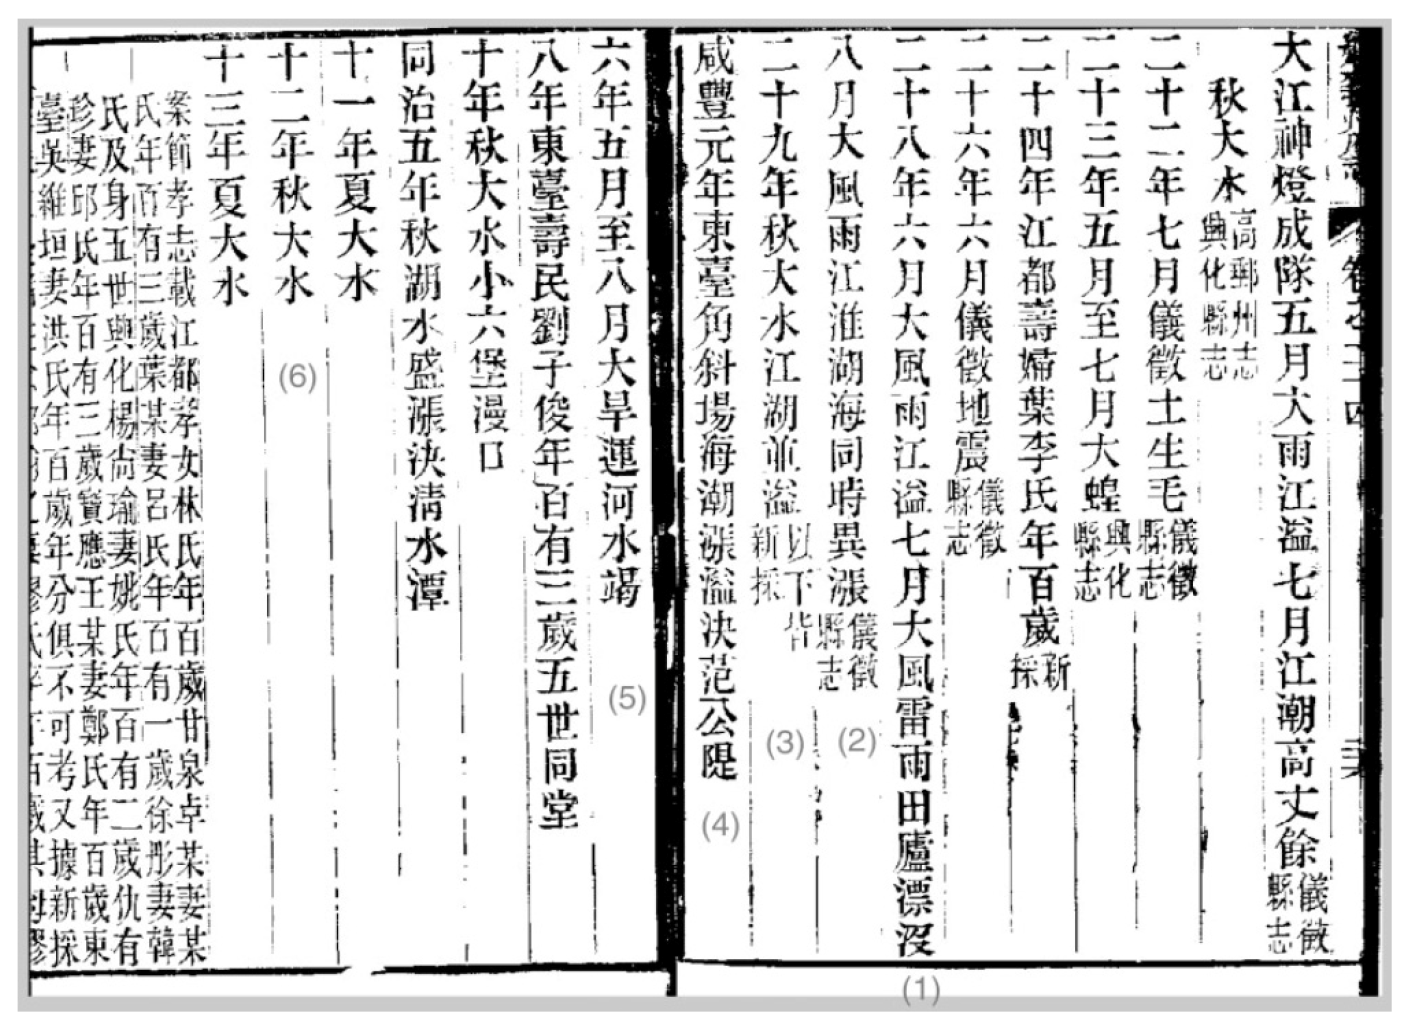 卷之二四
大江神燈成隊五月大雨江溢七月江潮高丈餘儀徵縣志
秋大水高郵州志興化縣志
二十二年七月儀徵土生毛儀徵縣志
二十三年五月至七月大蝗興化縣志
二十四年江都壽婦葉李氏年百歲新採
二十六年六月儀徵地震儀徵縣志
二十八年六月大風雨江溢七月大風雷雨田廬漂沒
(1)
八月大風雨江淮湖海同時異漲儀徵縣志
(2)
二十九年秋大水江湖並溢以下皆新採
(3)
咸豐元年東臺角斜場海潮漲溢決范公隄
(4)
六年五月至八月大旱運河水竭
(5)
八年東臺壽民劉子俊年百有三歲五世同堂
十年秋大水小六堡漫口
同治五年秋湖水盛漲決清水潭
十一年夏大水
十二年秋大水
(6)
十三年夏大水
案節孝志載江都孝女林氏年百歲甘泉卓某妻某
氏年百有三歲葉某妻呂氏年百有一歲徐彤妻韓
氏及身五世興化楊尙瑜妻姚氏年百有二歲仇有
珍妻邱氏年百有三歲寶應王某妻鄭氏年百歲東
臺吳維垣妻洪氏年百歲年分俱不可考又據新採